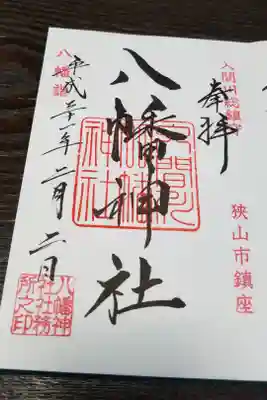 奉拝
入間川総鎮守
狭山市鎮座
八幡神社
入間川
八幡神社
八幡詣
平成三十一年二月二日
八幡神
社社務
所之印